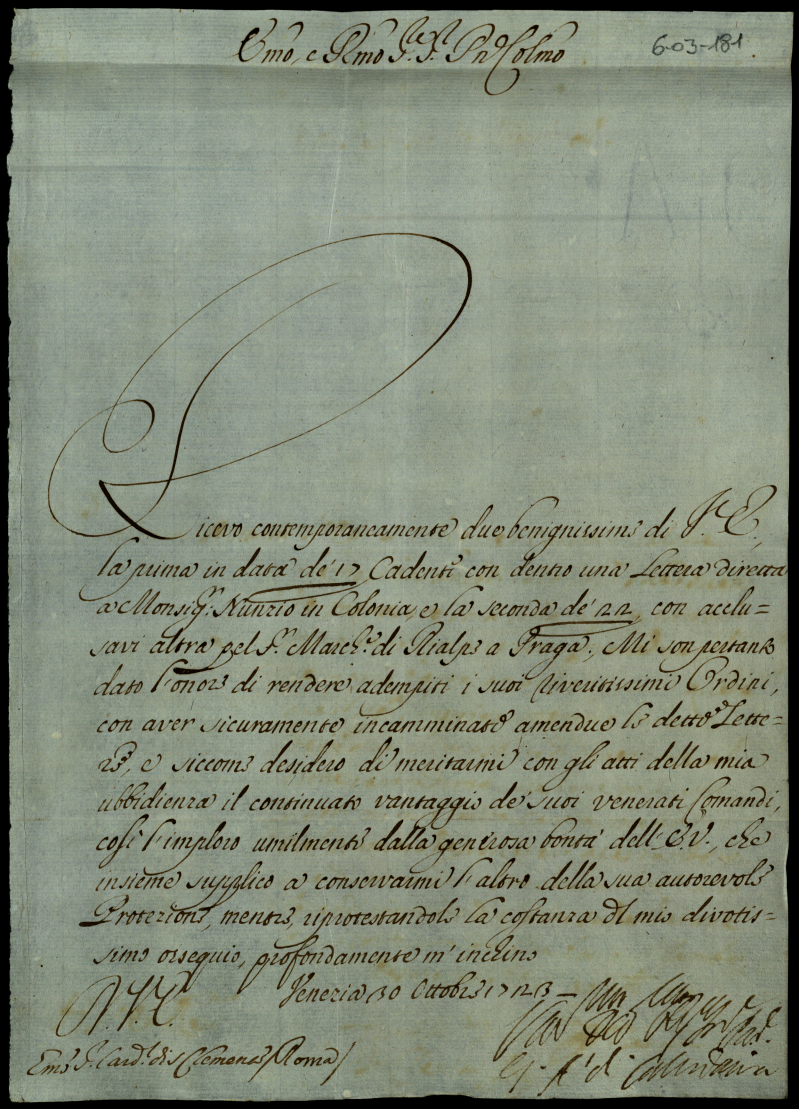 Emo, e Rmo Sr. Sr. Pnē Colmo
6-03-181
Ricevo contemporaneamente due benignissime di V. E.,
la prima in data de' 17 Cadente con dentro una Lettera diretta
a Monsigr. Nunzio in Colonia, e la seconda de' 22, con acclu=
savi altra pel Sr. March.e di Rialp a Praga; Mi son pertanto
dato l'onore di rendere adempiti i suoi riveritissimi Ordini,
con aver sicuramente incamminate amendue le dette Lette=
re, e siccome desidero di meritarmi con gli atti della mia
ubbidienza il continuato vantaggio de' suoi venerati Comandi,
così l'imploro umilmente dalla generosa bontà dell'E.V., che
insieme supplico a conservarmi l'altro della sua autorevole
Protezione, mentre, riprotestandole la costanza del mio divotis=
simo ossequio, profondamente m'inchino
Venezia 30 Ottobre 1723
Emo Sr. Card.l di S Clemente /Roma/